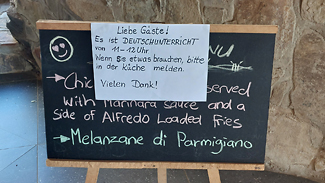 Liebe Gäste!
Es ist DEUTSCHUNTERRICHT
von 11-12 Uhr
Wenn Sie etwas brauchen, bitte
in der Küche melden.
Vielen Dank!
NU
Chic
served
with Marinara sauce and a
side of Alfredo Loaded Fries
Melanzane di Parmigiano